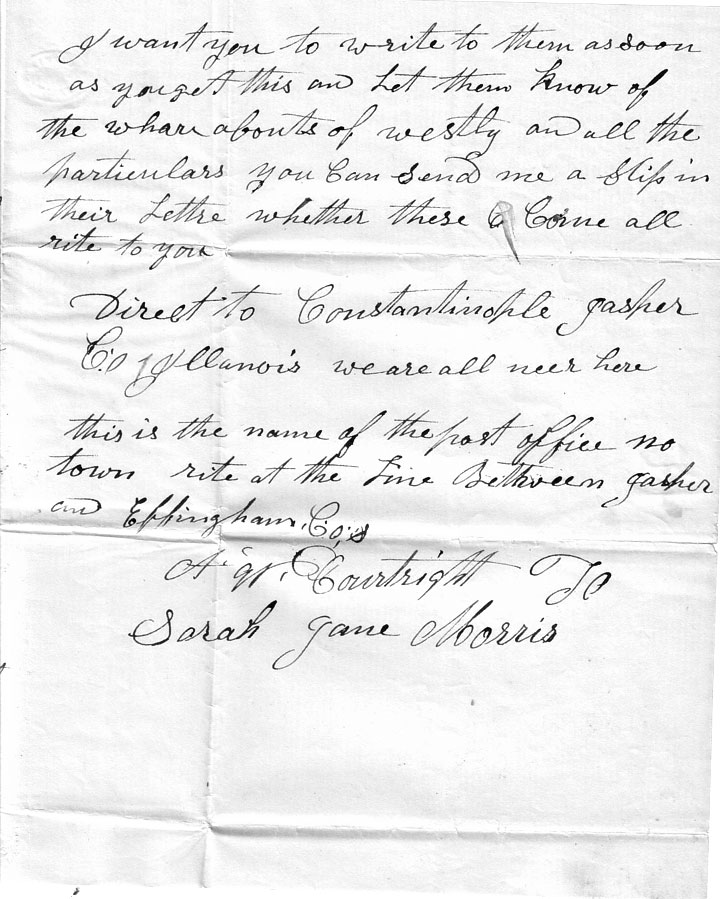 I want you to write to them as soon
as you get this an Let them know of
the whare abouts of westly an all the
particulars you Can send me a slip in
their Lettre whether these Come all
rite to you
Direct to Constantinople Jasher
Co Illanois we are all neer here
this is the name of the post office no
town rite at the Line Between Jasher
and Effingham, Co,s
Courtright To
Sarah Jane Morris